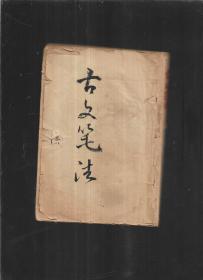 古文笔法